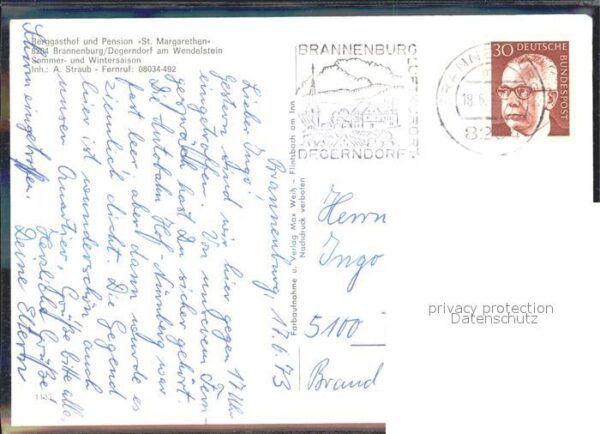 Berggasthof und Pension »St. Margarethen«
8204 Brannenburg/Degerndorf am Wendelstein
Sommer- und Wintersaison
Inh.: A. Straub - Fernruf: 08034-492
Brannenburg, 17.6.73
Lieber Ingo!
Gestern sind wir hier gegen 17 Uhr
eingetroffen. Von unserem Fern-
gespräch hast Du sicher gehört.
Die Autobahn Hof-Nürnberg war
fast leer, aber dann wurde es
ziemlich dicht. Die Gegend
hier ist wunderschön, auch
unser Quartier. Grüße bitte alle.
Herzliche Grüße!
Deine Eltern
eingetroffen.
1133
Farbaufnahme u. Verlag Max Weiß - Flintsbach am Inn
Nachdruck verboten
BRANNENBURG
DEGERNDORF
LUFTKURORT
18.6.
30 DEUTSCHE
BUNDESPOST
Herrn
Ingo
5100
Brand
privacy protection
Datenschutz